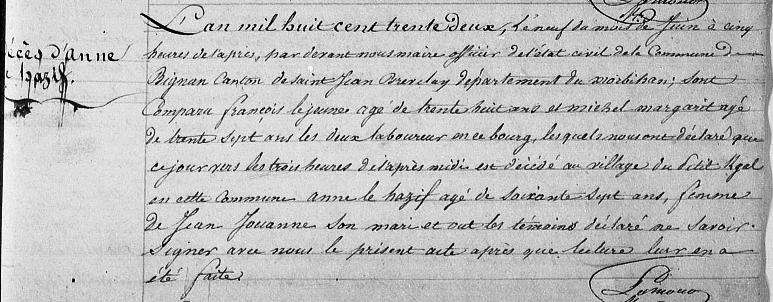 décès d'anne
le hazif.
L'an mil huit cent trente deux, le neuf du mois de Juin à cinq
heures de l'après, par devant nous maire officier de l'état civil de la Commune de
Bignan Canton de saint Jean Brevelay departement du morbihan; sont
Comparu françois le jeune agé de trente huit ans et michel margarit agé
de trente sept ans les deux laboureur en ce bourg, lesquels nous ont déclaré que
ce jour vers les trois heures de l'après midi est décédé au village du Petit Kgal
en cette Commune anne le hazif agé de soixante sept ans, femme
de Jean Jouanne son mari et ont les témoins déclaré ne savoir
signer avec nous le présent acte après que lecture leur en a
été faite